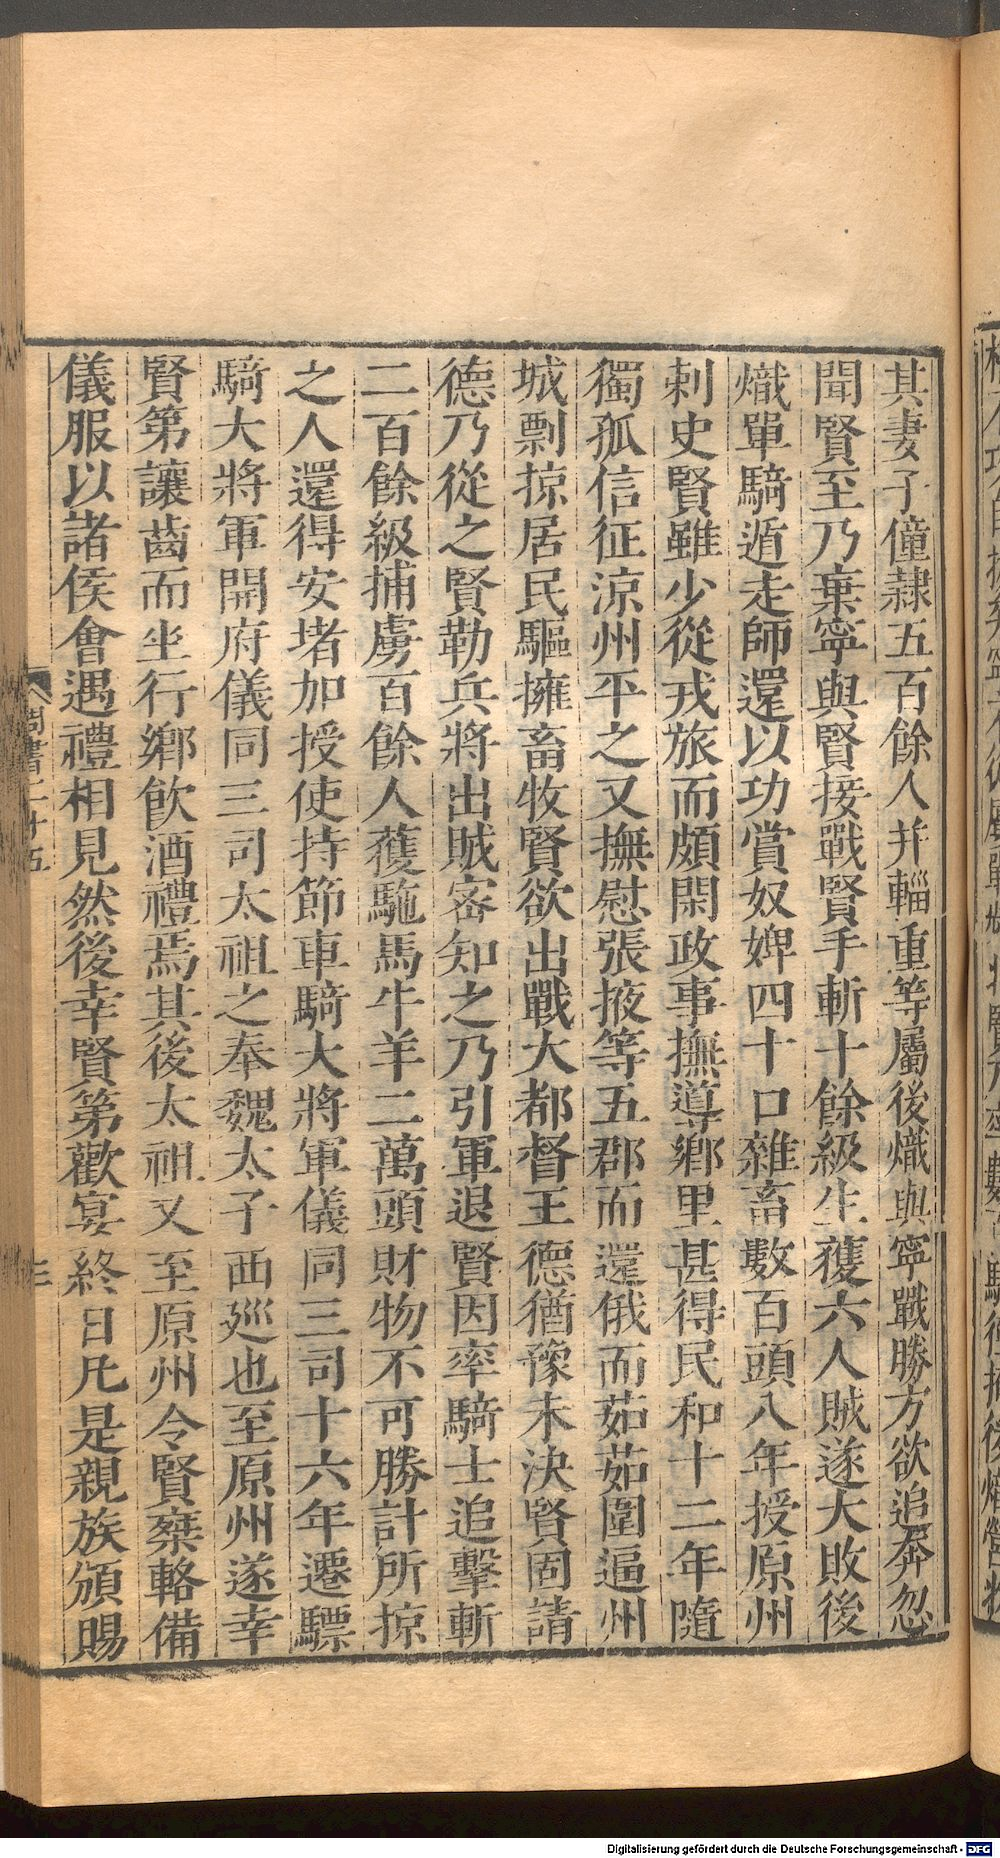 其妻子僮隷五百餘人并輜重等屬後熾與寧戰勝方欲追奔忽
聞賢至乃棄寧與賢接戰賢手斬十餘級生獲六人賊遂大敗後
熾單騎遁走師還以功賞奴婢四十口雜畜數百頭八年授原州
刺史賢雖少從戎旅而頗閑政事撫導鄉里甚得民和十二年隨
獨孤信征涼州平之又撫慰張掖等五郡而還俄而茹茹圍逼州
城剽掠居民驅擁畜牧賢欲出戰大都督王德猶豫未決賢固請
德乃從之賢勒兵將出賊密知之乃引軍退賢因率騎士追擊斬
二百餘級捕虜百餘人獲駞馬牛羊二萬頭財物不可勝計所掠
之人還得安堵加授使持節車騎大將軍儀同三司十六年遷驃
騎大將軍開府儀同三司太祖之奉魏太子西廵也至原州遂幸
賢第讓齒而坐行鄉飲酒禮焉其後太祖又至原州令賢乘輅備
儀服以諸侯會遇禮相見然後幸賢第歡宴終日凡是親族頒賜
周書二十五
三
Digitalisierung gefördert durch die Deutsche Forschungsgemeinschaft - DFG